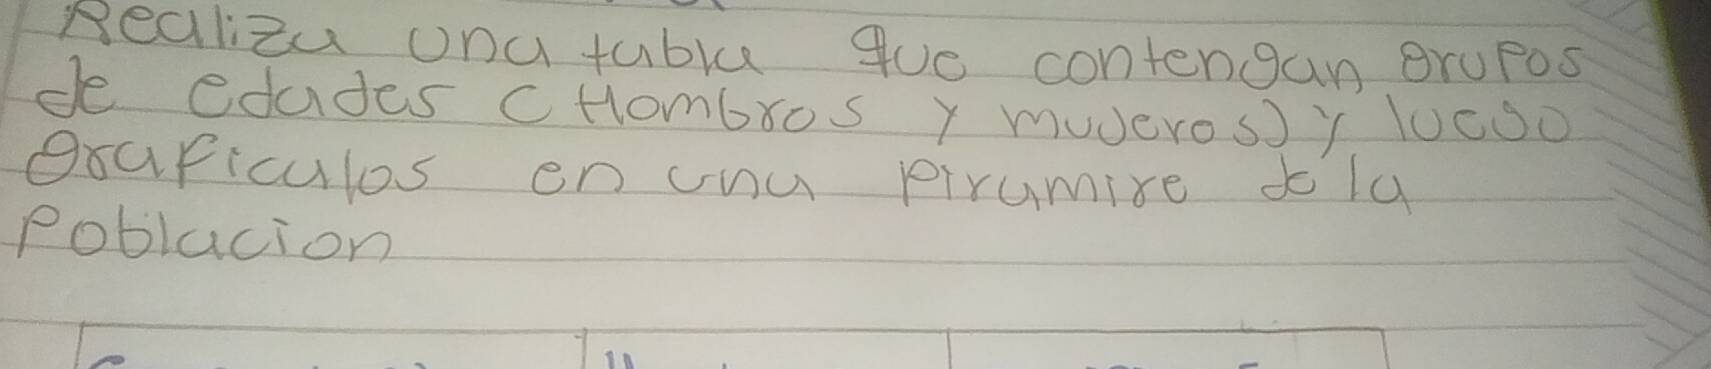 Realiza una tabla que contengan grupos
de edades (Hombros y mujeros) y luego
graficalos en una piramire de la
poblacion